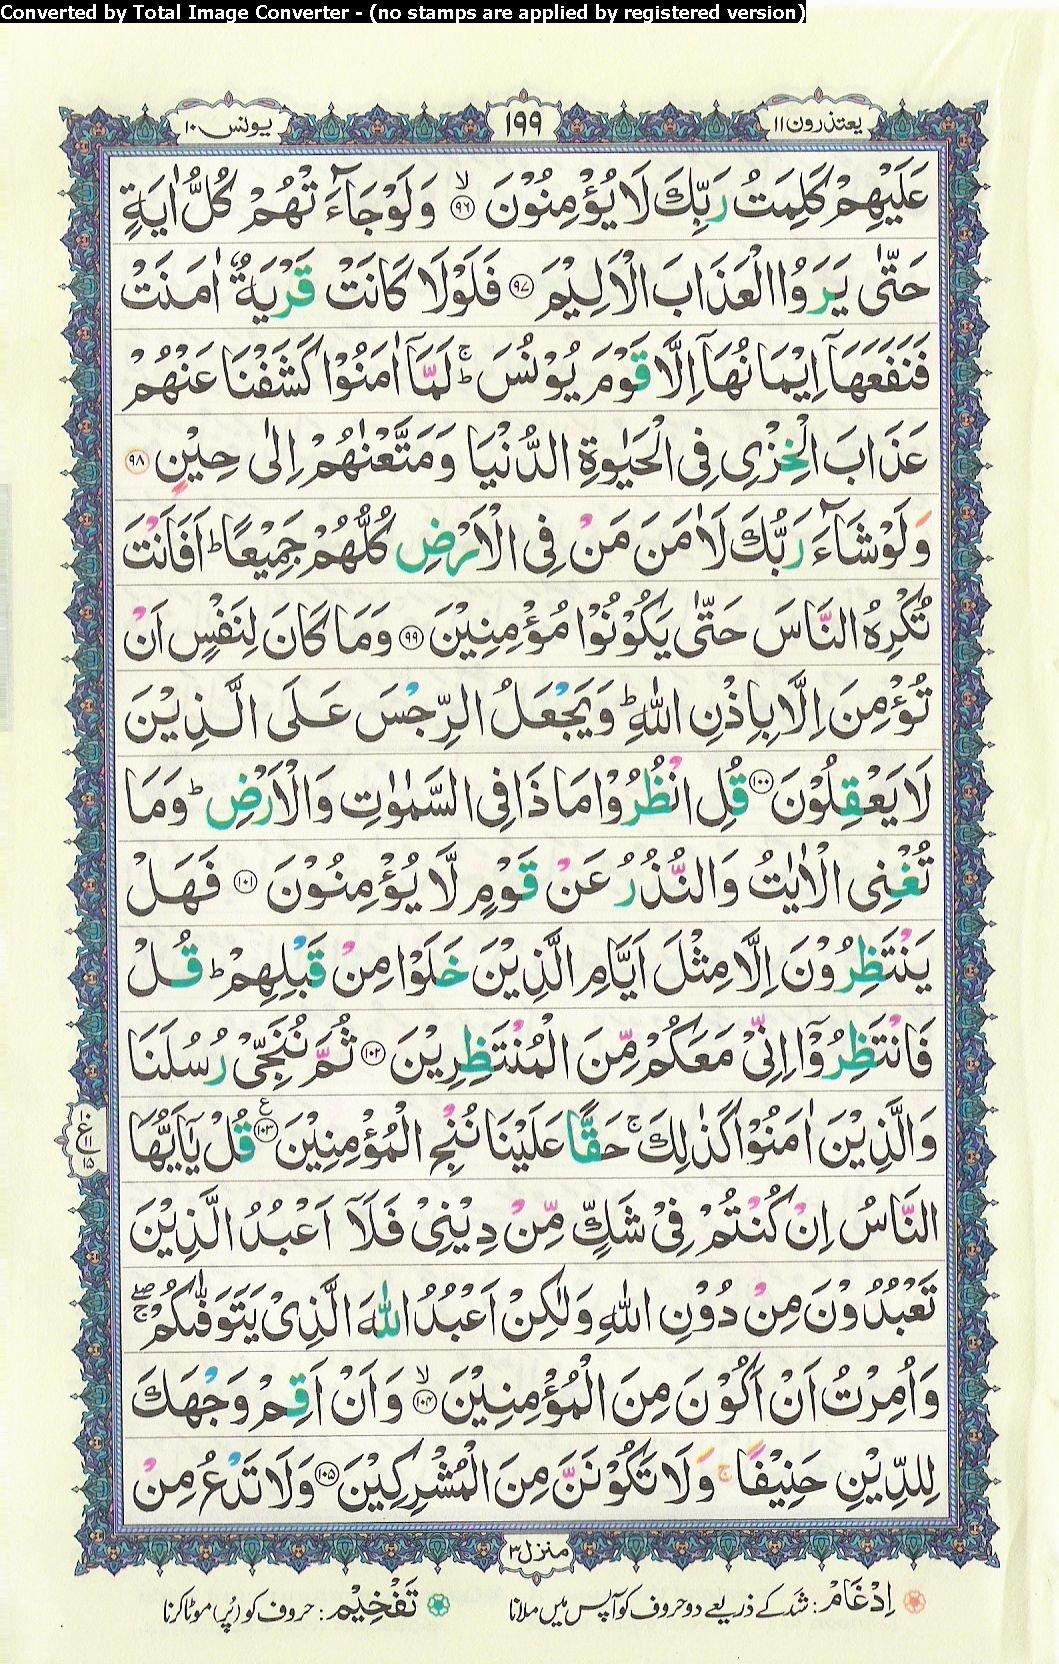 Converted by Total Image Converter - (no stamps are applied by registered version)
یعتذرون۱۱ ۱۹۹ یونس۱۰
عَلَيْهِمْ كَلِمَتُ رَبِّكَ لَا يُؤْمِنُوْنَ ۙ۹۶ وَلَوْ جَآءَتْهُمْ كُلُّ اٰيَةٍ
حَتّٰى يَرَوُا الْعَذَابَ الْاَلِيْمَ ۹۷ فَلَوْلَا كَانَتْ قَرْيَةٌ اٰمَنَتْ
فَنَفَعَهَاۤ اِيْمَانُهَاۤ اِلَّا قَوْمَ يُوْنُسَ ؕۚ لَمَّاۤ اٰمَنُوْا كَشَفْنَا عَنْهُمْ
عَذَابَ الْخِزْيِ فِى الْحَيٰوةِ الدُّنْيَا وَمَتَّعْنٰهُمْ اِلٰى حِيْنٍ ۹۸
وَلَوْ شَآءَ رَبُّكَ لَاٰمَنَ مَنْ فِى الْاَرْضِ كُلُّهُمْ جَمِيْعًا ؕ اَفَاَنْتَ
تُكْرِهُ النَّاسَ حَتّٰى يَكُوْنُوْا مُؤْمِنِيْنَ ۹۹ وَمَا كَانَ لِنَفْسٍ اَنْ
تُؤْمِنَ اِلَّا بِاِذْنِ اللّٰهِ ؕ وَيَجْعَلُ الرِّجْسَ عَلَى الَّذِيْنَ
لَا يَعْقِلُوْنَ ۱۰۰ قُلِ انْظُرُوْا مَاذَا فِى السَّمٰوٰتِ وَالْاَرْضِ ؕ وَمَا
تُغْنِى الْاٰيٰتُ وَالنُّذُرُ عَنْ قَوْمٍ لَّا يُؤْمِنُوْنَ ۱۰۱ فَهَلْ
يَنْتَظِرُوْنَ اِلَّا مِثْلَ اَيَّامِ الَّذِيْنَ خَلَوْا مِنْ قَبْلِهِمْ ؕ قُلْ
فَانْتَظِرُوْۤا اِنِّىْ مَعَكُمْ مِّنَ الْمُنْتَظِرِيْنَ ۱۰۲ ثُمَّ نُنَجِّىْ رُسُلَنَا
وَالَّذِيْنَ اٰمَنُوْا كَذٰلِكَ ۚ حَقًّا عَلَيْنَا نُنْجِ الْمُؤْمِنِيْنَ ۱۰۳ ع قُلْ يٰۤاَيُّهَا
۱۰ ع ۱۱ ۱۵
النَّاسُ اِنْ كُنْتُمْ فِىْ شَكٍّ مِّنْ دِيْنِىْ فَلَاۤ اَعْبُدُ الَّذِيْنَ
تَعْبُدُوْنَ مِنْ دُوْنِ اللّٰهِ وَلٰكِنْ اَعْبُدُ اللّٰهَ الَّذِىْ يَتَوَفّٰىكُمْ ۖۚ
وَاُمِرْتُ اَنْ اَكُوْنَ مِنَ الْمُؤْمِنِيْنَ ۙ۱۰۴ وَاَنْ اَقِمْ وَجْهَكَ
لِلدِّيْنِ حَنِيْفًا ۚ وَلَا تَكُوْنَنَّ مِنَ الْمُشْرِكِيْنَ ۱۰۵ وَلَا تَدْعُ مِنْ
منزل۳
اِدْغَامْ: شَد کے ذریعے دو حروف کو آپس میں ملانا تَفْخِيْم: حروف کو (پُر) موٹا کرنا